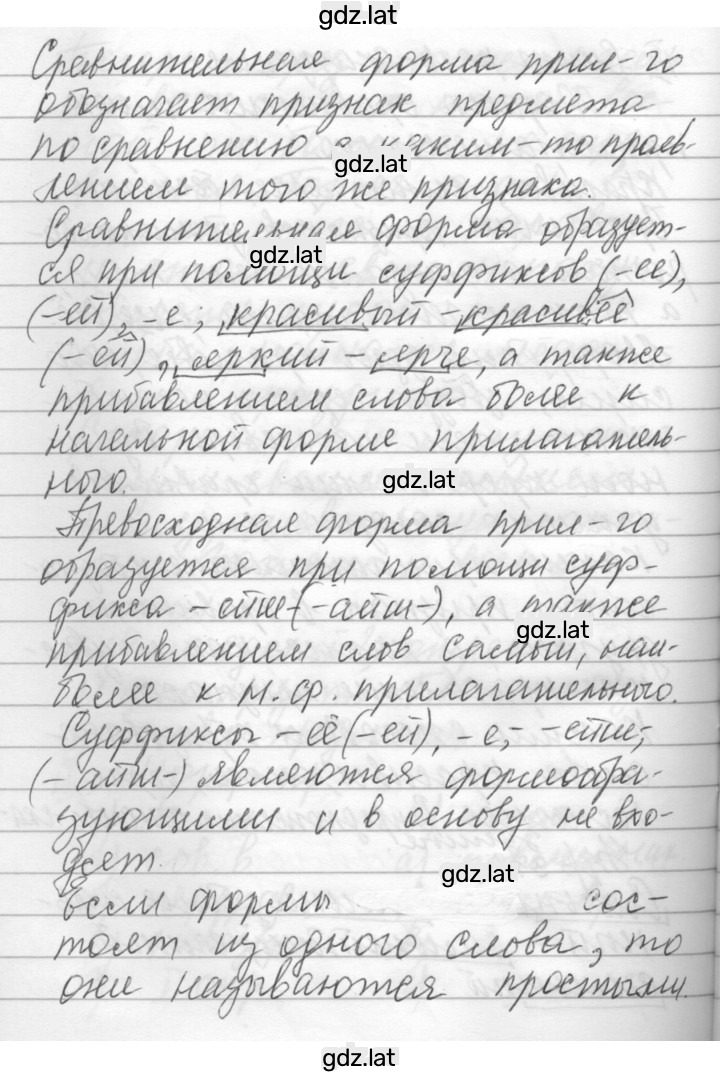 gdz.lat
Сравнительная форма прил-го
обозначает признак предмета
по сравнению с каким-то прояв-
gdz.lat
лением того же признака.
Сравнительная форма образует-
gdz.lat
ся при помощи суффиксов (-ее),
(-ей), -е; красивый - красивее
(-ей), яркий - ярче, а также
прибавлением слова более к
начальной форме прилагатель-
ного.
gdz.lat
Превосходная форма прил-го
образуется при помощи суф-
фикса -ейш-(-айш-), а также
gdz.lat
прибавлением слов самый, наи-
более к н.ф. прилагательного.
Суффиксы -ее(-ей), -е,- -ейш,-
(-айш-) являются формообра-
зующими и в основу не вхо-
дят.
gdz.lat
Если формы сос-
тоят из одного слова, то
они называются простыми.
gdz.lat